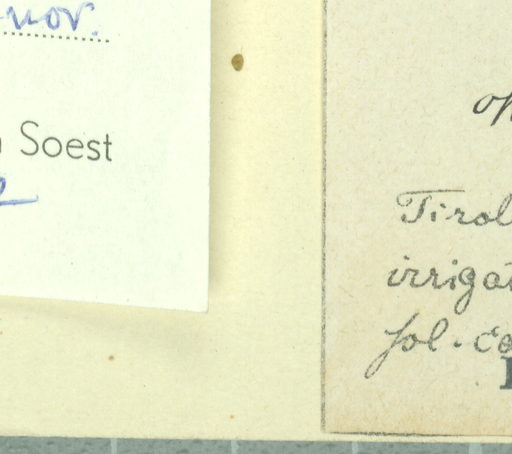 nov.
Soest
Tirol
irrigat
sol. ce